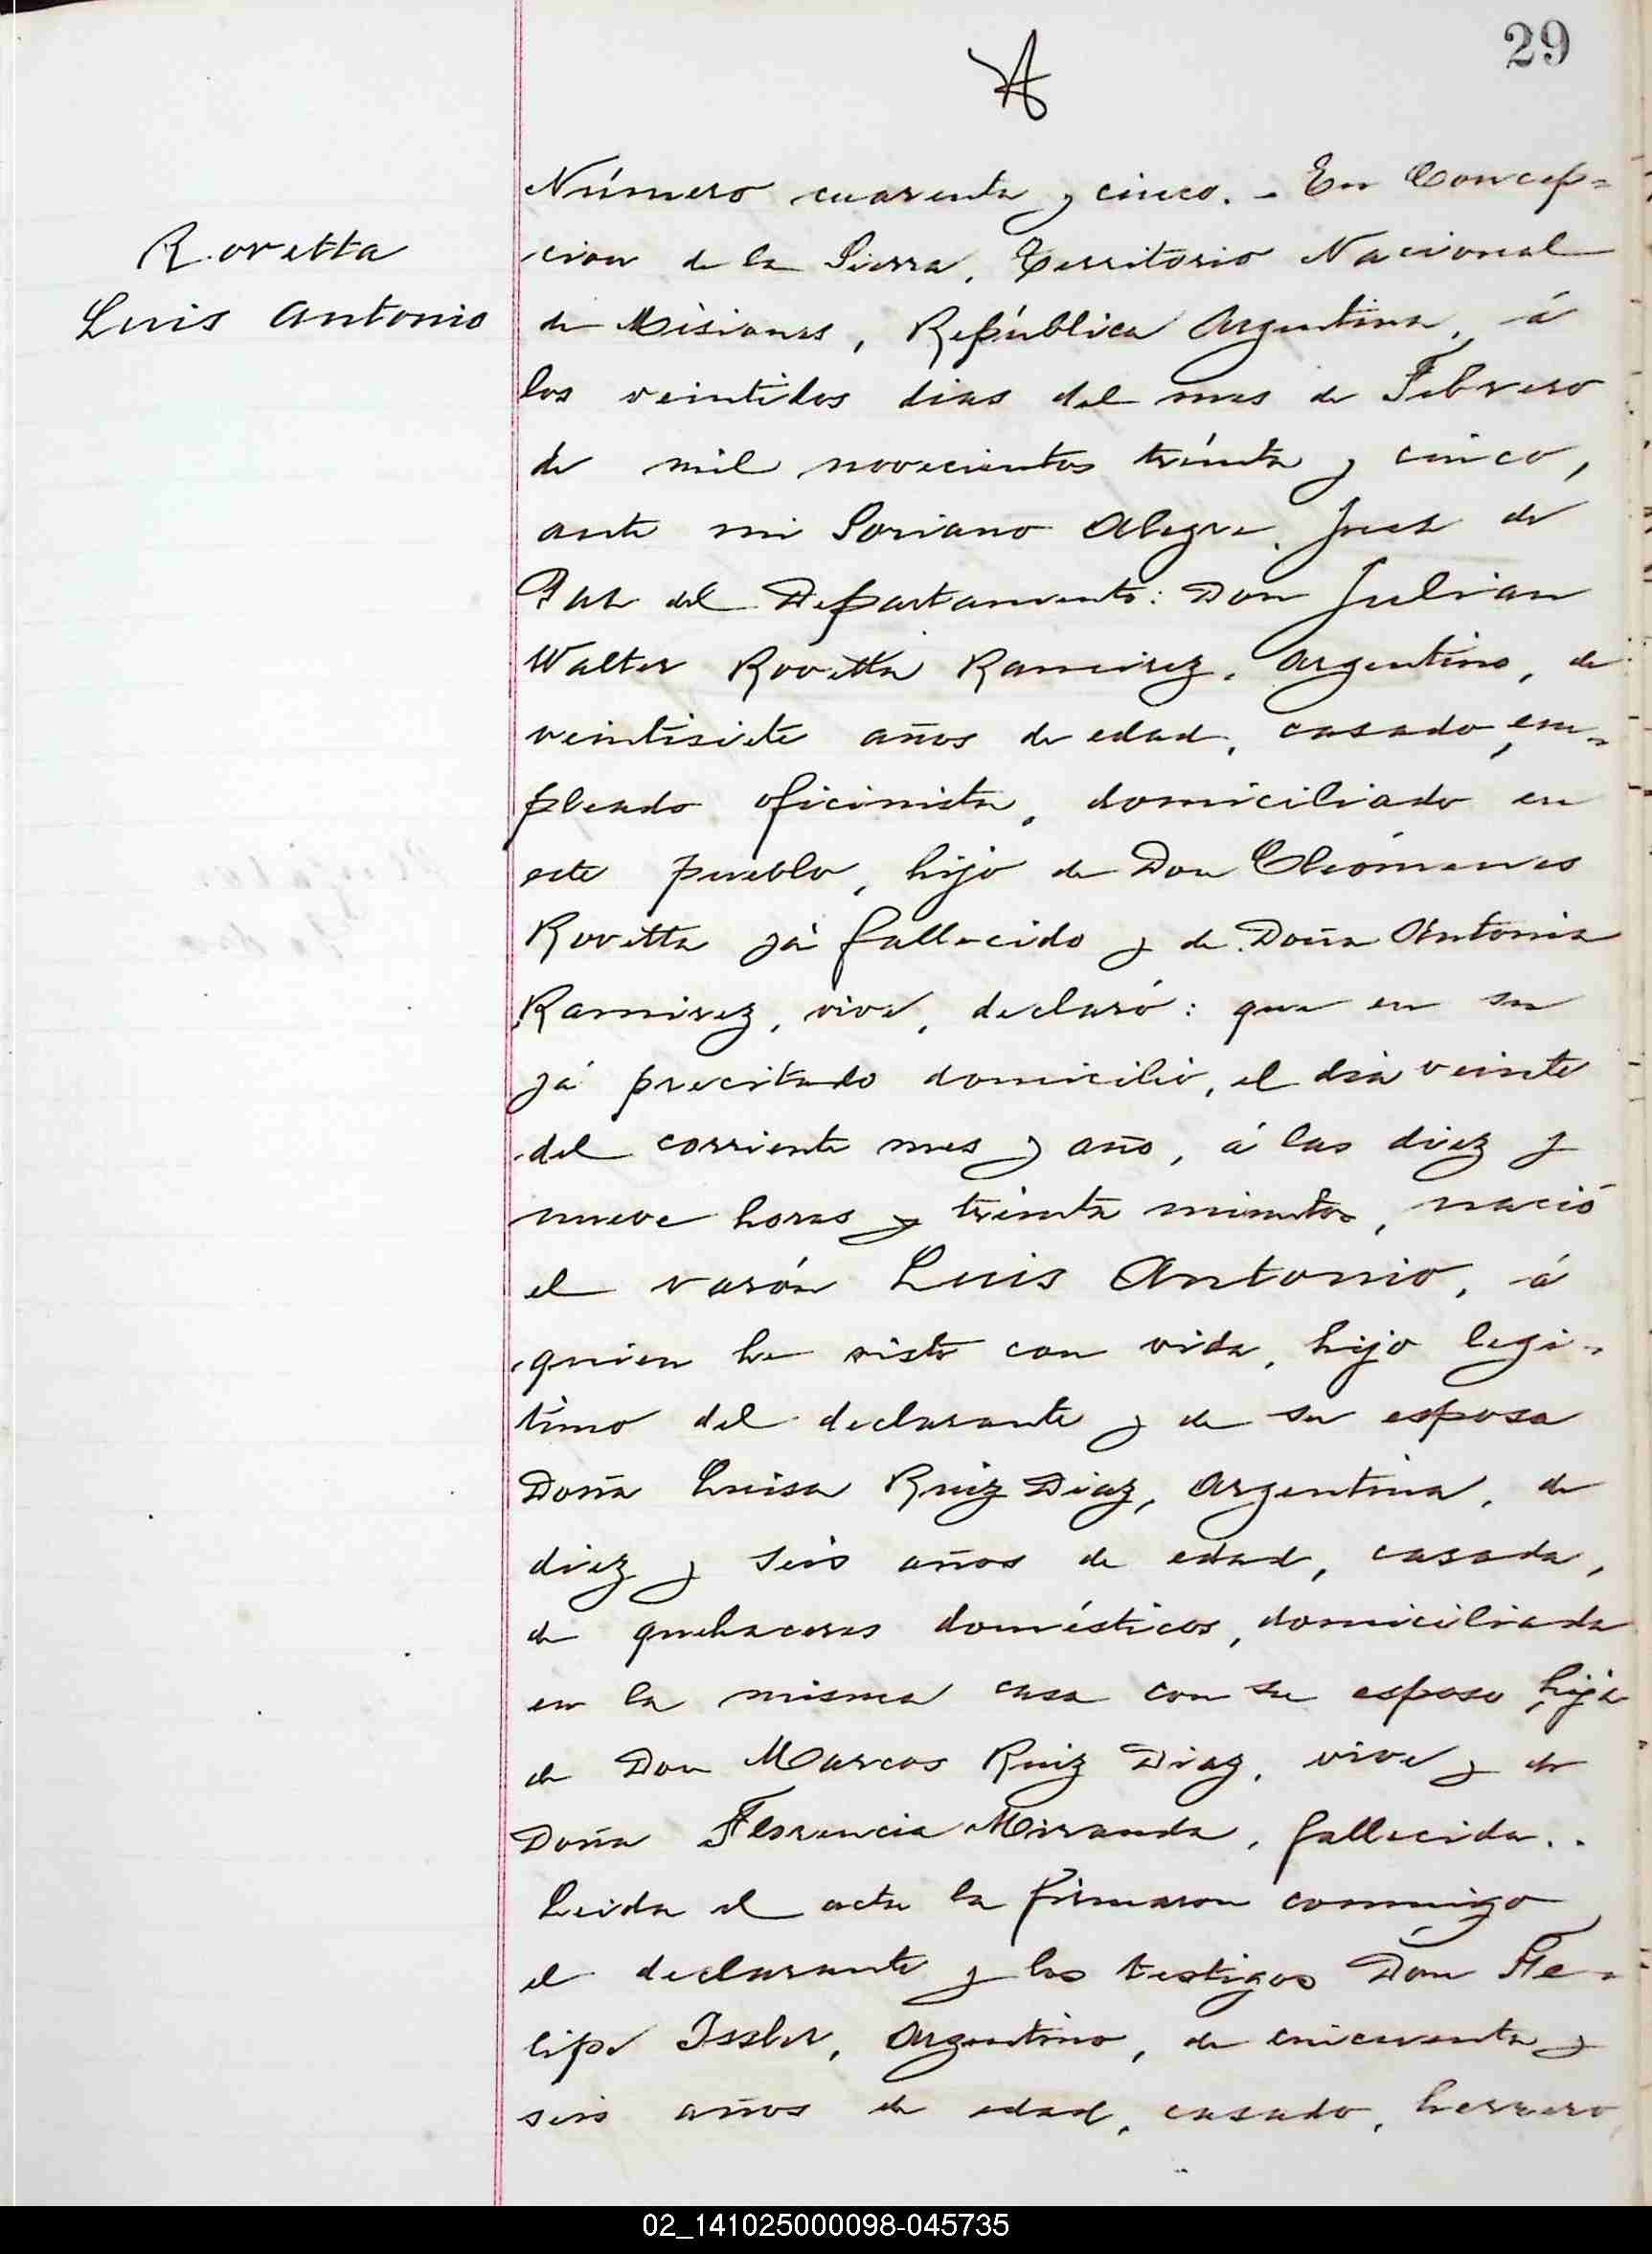 29
Rovetta
Luis Antonio
Número cuarenta y cinco. - En Concep=
cion de la Sierra, Territorio Nacional
de Misiones, República Argentina, á
los veintidos dias del mes de Febrero
de mil novecientos treinta y cinco,
ante mi Soriano Alegre, Juez de
Paz del Departamento: Don Julian
Walter Rovetta Ramirez, Argentino, de
veintisiete años de edad, casado, em=
pleado oficinista, domiciliado en
este pueblo, hijo de Don Cleómenes
Rovetta yá fallecido y de Doña Antonia
Ramirez, vive, declaró: que en su
yá precitado domicilio, el dia veinte
del corriente mes y año, á las diez y
nueve horas y treinta minutos, nació
el varón Luis Antonio, á
quien he visto con vida, hijo legi-
timo del declarante y de su esposa
Doña Luisa Ruiz Diaz, Argentina, de
diez y seis años de edad, casada,
de quehaceres domésticos, domiciliada
en la misma casa con su esposo, hija
de Don Marcos Ruiz Diaz, vive y de
Doña Florencia Miranda, fallecida..
Leida el acta la firmaron conmigo
el declarante y los testigos Don Fe-
lipe Issler, Argentino, de cincuenta y
seis años de edad, casado, herrero,
02_141025000098-045735